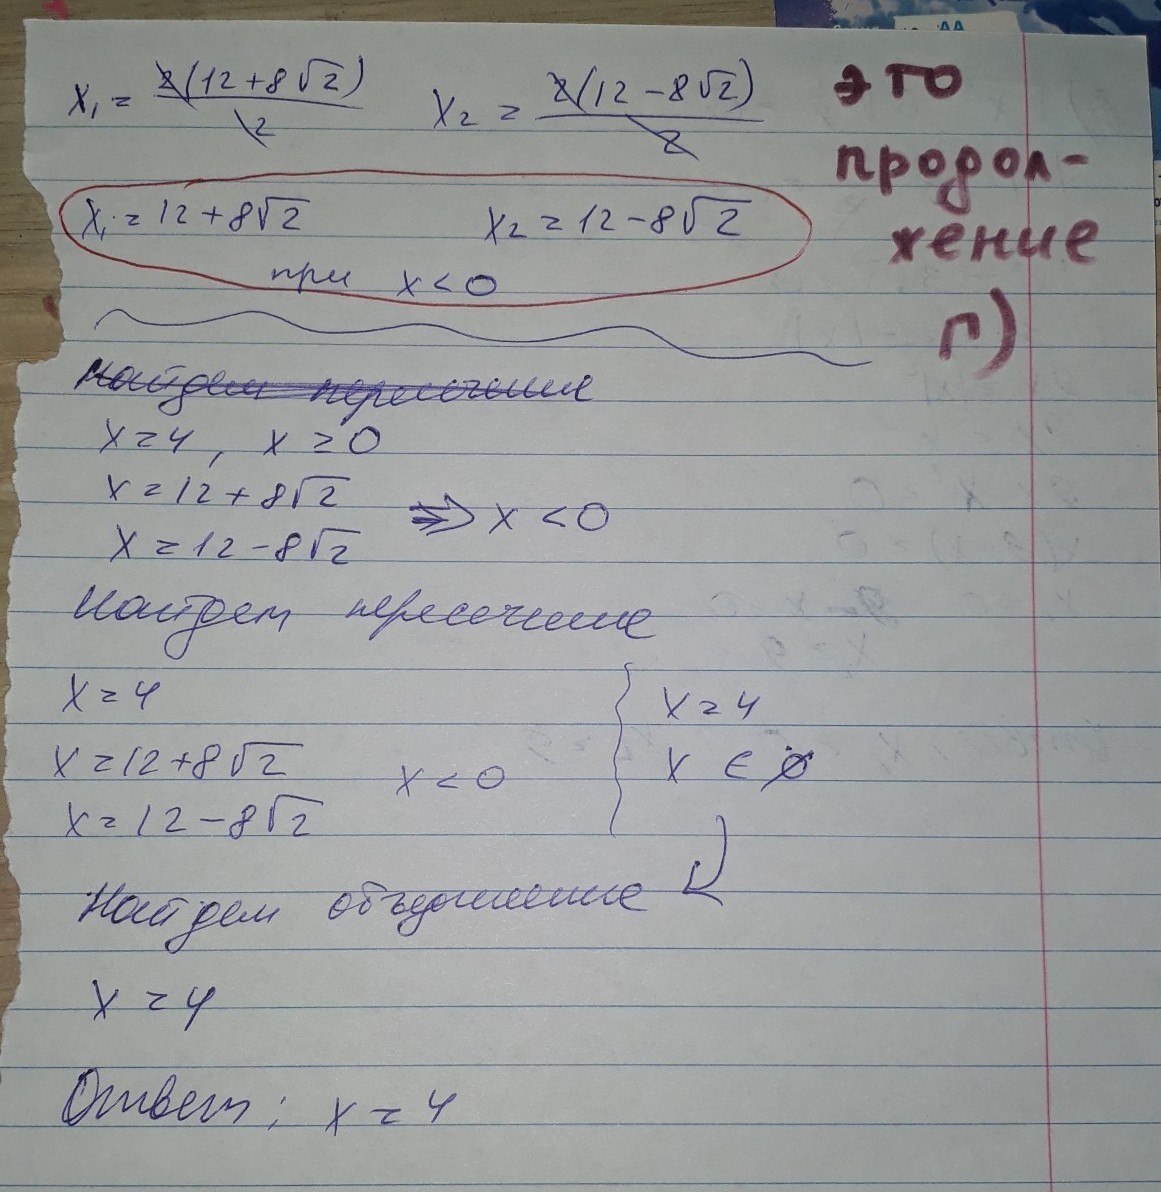 x₁ = 2(12+8√2)/2 x₂ = 2(12-8√2)/2
это
продол-
жение
г)
x₁ = 12+8√2 x₂ = 12-8√2
при x<0
Найдем пересечение
x=4, x≥0
x=12+8√2
x=12-8√2 ⇒ x<0
Найдем пересечение
x=4
x=12+8√2 x<0
x=12-8√2
{ x=4
x ∈ ∅
Найдем объединение
x=4
Ответ: x=4